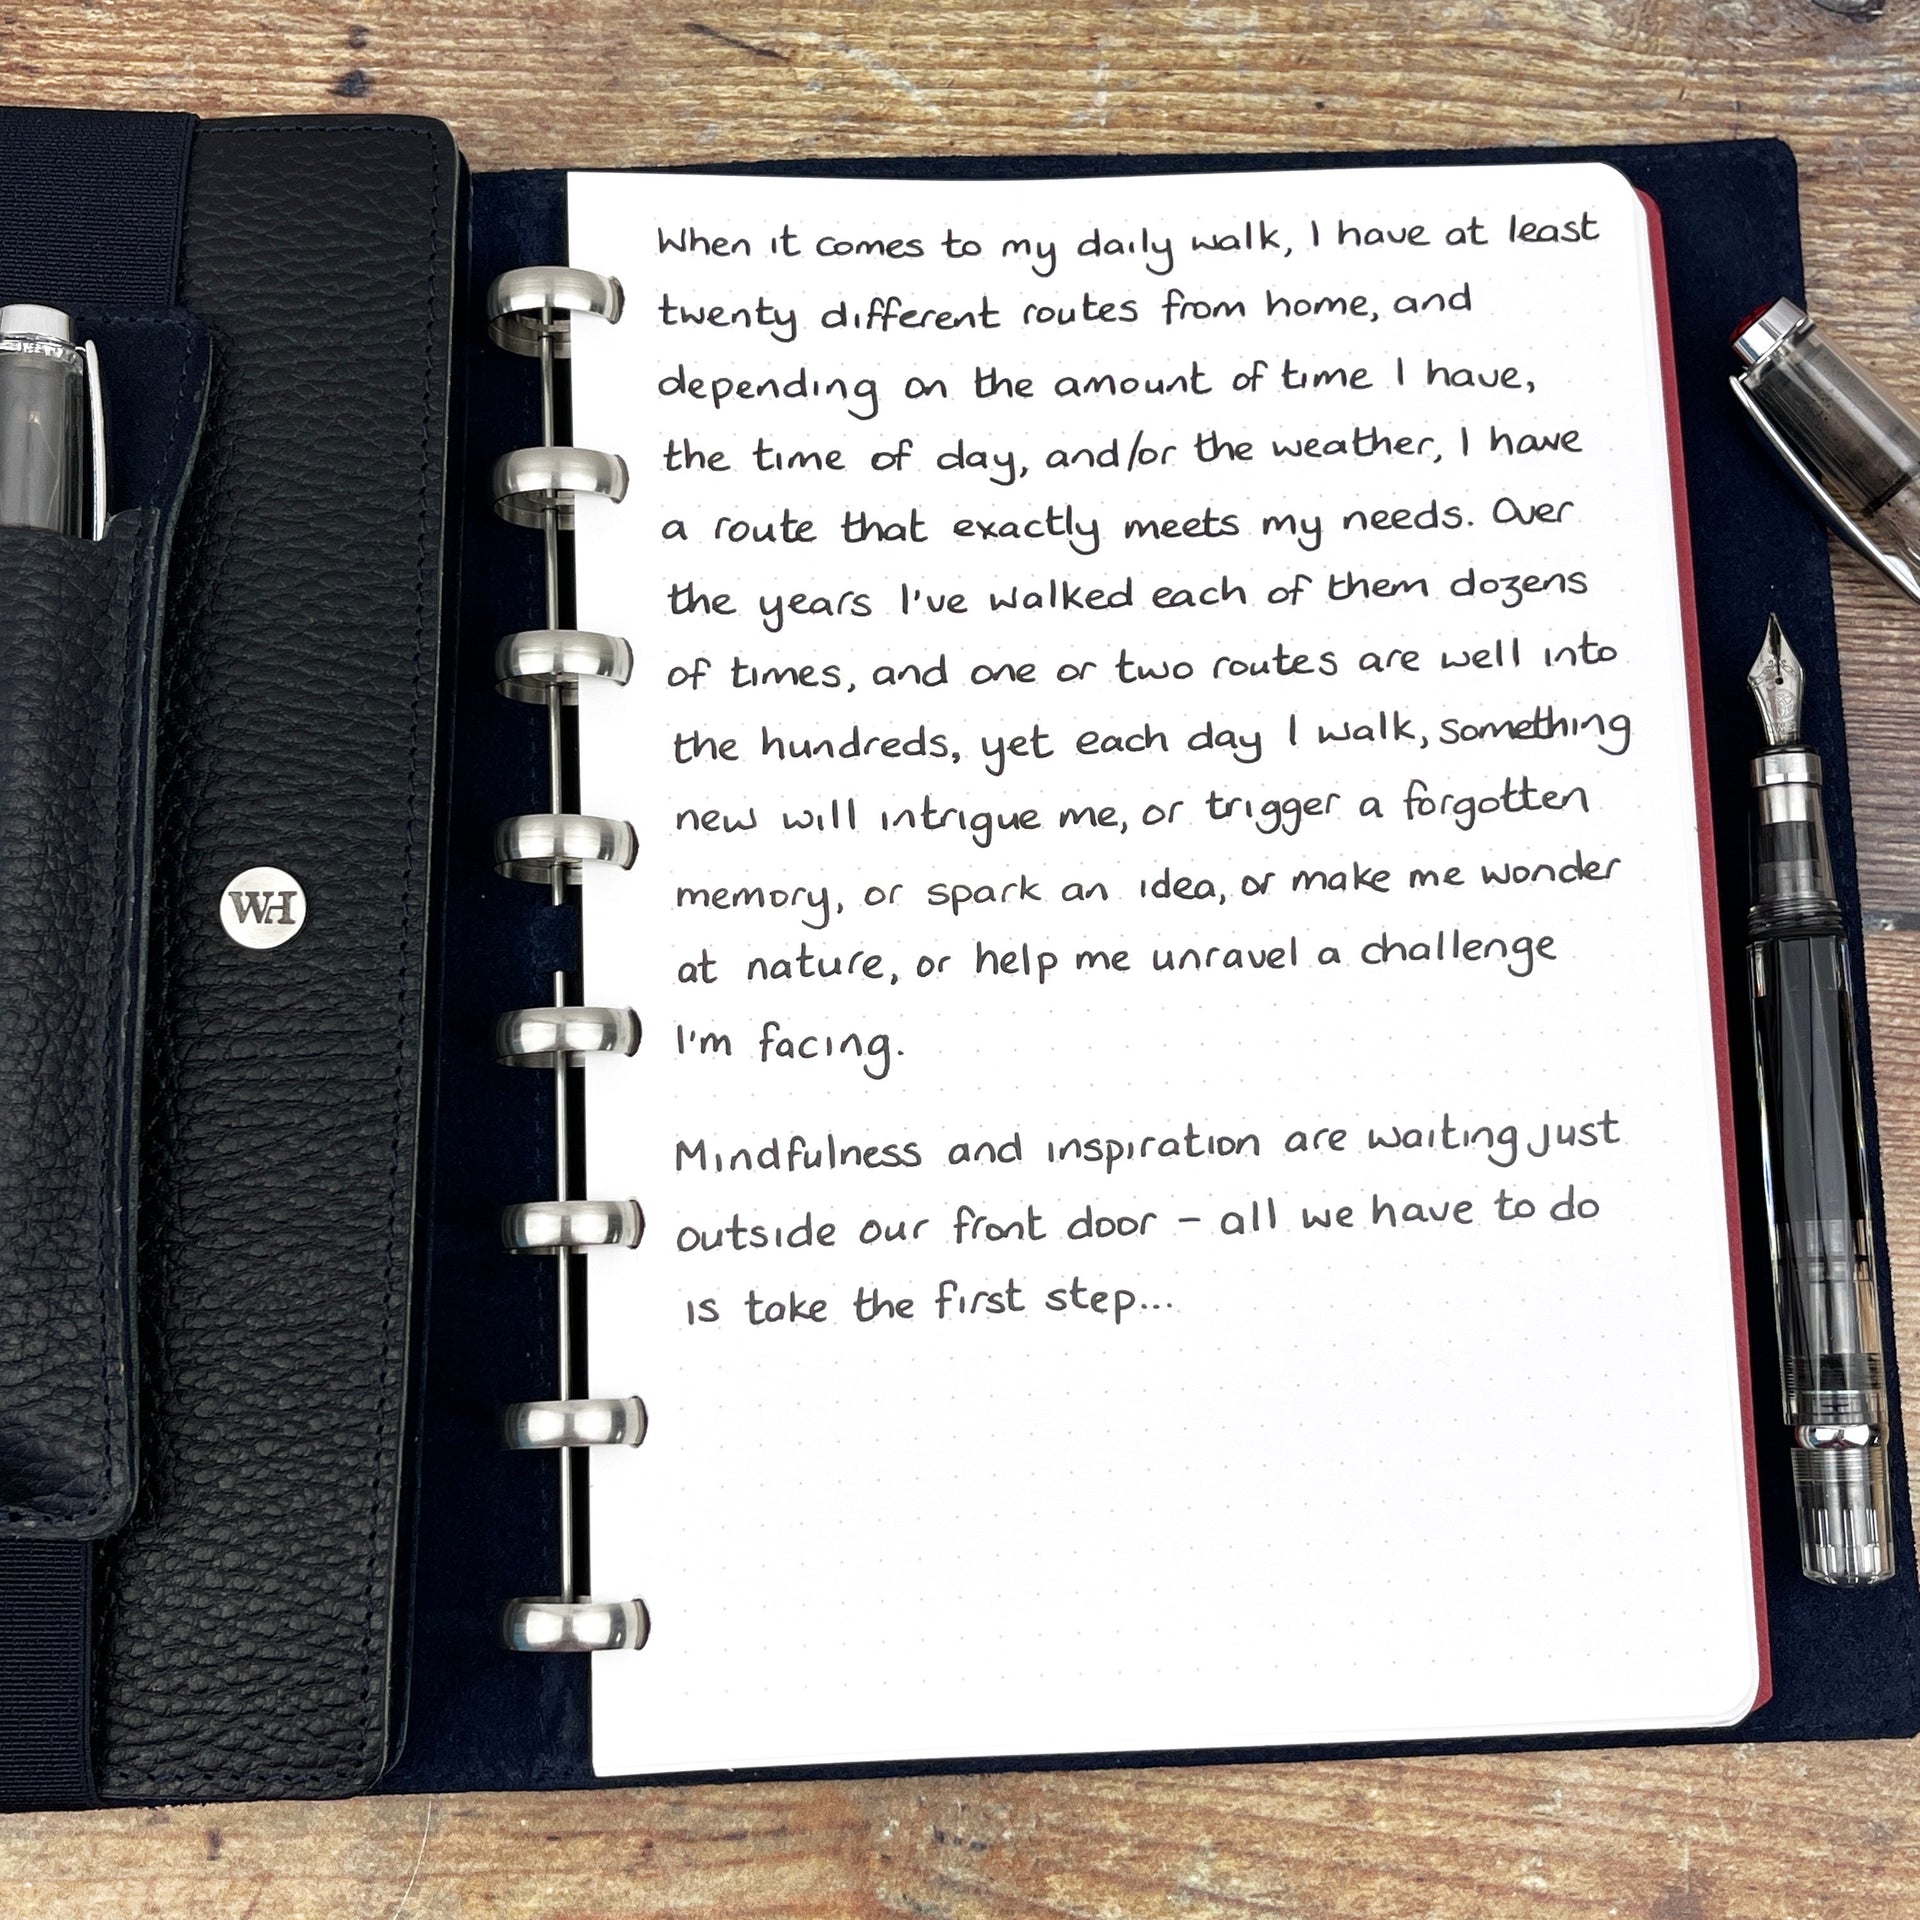 When it comes to my daily walk, I have at least
twenty different routes from home, and
depending on the amount of time I have,
the time of day, and/or the weather, I have
a route that exactly meets my needs. Over
the years I've walked each of them dozens
of times, and one or two routes are well into
the hundreds, yet each day I walk, something
new will intrigue me, or trigger a forgotten
memory, or spark an idea, or make me wonder
at nature, or help me unravel a challenge
I'm facing.
Mindfulness and inspiration are waiting just
outside our front door – all we have to do
is take the first step...
WH